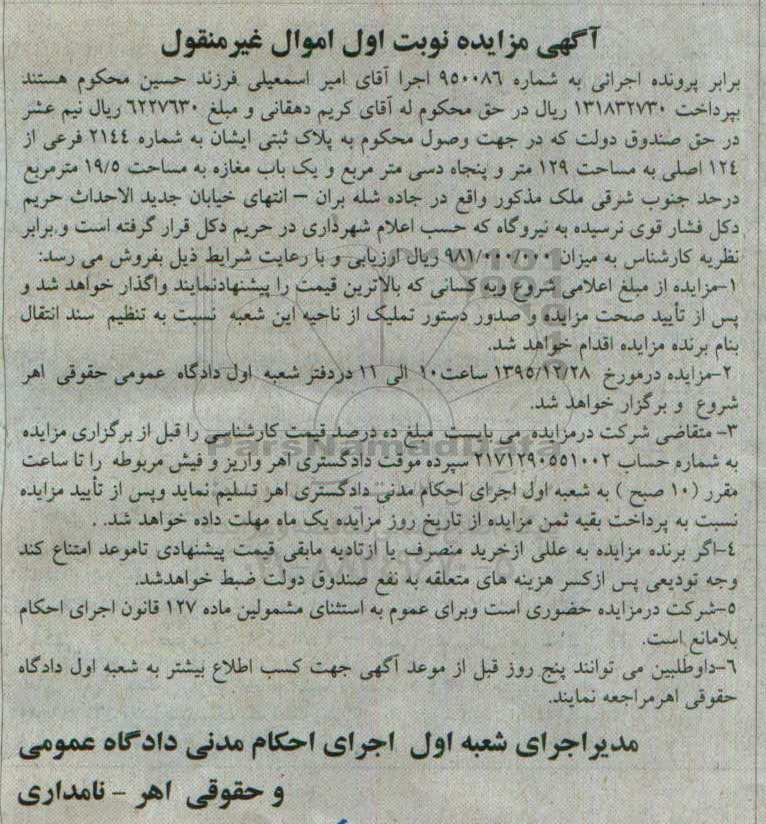 آگهی مزایده نوبت اول اموال غیرمنقول
برابر پرونده اجرائی به شماره ۹۵۰۰۸۶ اجرا آقای امیر اسمعیلی فرزند حسین محکوم هستند
بپرداخت ۱۳۱۸۳۲۷۳۰ ریال در حق محکوم له آقای کریم دهقانی و مبلغ ۶۲۲۷۶۳۰ ریال نیم عشر
در حق صندوق دولت که در جهت وصول محکوم به پلاک ثبتی ایشان به شماره ۲۱۴۴ فرعی از
۱۲۴ اصلی به مساحت ۱۲۹ متر و پنجاه دسی متر مربع و یک باب مغازه به مساحت ۱۹/۵ مترمربع
درحد جنوب شرقی ملک مذکور واقع در جاده شله بران – انتهای خیابان جدید الاحداث حریم
دکل فشار قوی نرسیده به نیروگاه که حسب اعلام شهرداری در حریم دکل قرار گرفته است و برابر
نظریه کارشناس به میزان ۹۸۱/۰۰۰/۰۰۰ ریال ارزیابی و با رعایت شرایط ذیل بفروش می رسد:
۱–مزایده از مبلغ اعلامی شروع وبه کسانی که بالاترین قیمت را پیشنهادنمایند واگذار خواهد شد و
پس از تأیید صحت مزایده و صدور دستور تملیک از ناحیه این شعبه نسبت به تنظیم سند انتقال
بنام برنده مزایده اقدام خواهد شد.
۲–مزایده درمورخ ۱۳۹۵/۱۲/۲۸ ساعت۱۰ الی ۱۱ دردفتر شعبه اول دادگاه عمومی حقوقی اهر
شروع و برگزار خواهد شد.
۳– متقاضی شرکت درمزایده می بایست مبلغ ده درصد قیمت کارشناسی را قبل از برگزاری مزایده
به شماره حساب ۲۱۷۱۲۹۰۵۵۱۰۰۲ سپرده موقت دادگستری اهر واریز و فیش مربوطه را تا ساعت
مقرر (۱۰ صبح ) به شعبه اول اجرای احکام مدنی دادگستری اهر تسلیم نماید وپس از تأیید مزایده
نسبت به پرداخت بقیه ثمن مزایده از تاریخ روز مزایده یک ماه مهلت داده خواهد شد. .
۴–اگر برنده مزایده به عللی ازخرید منصرف یا ازتادیه مابقی قیمت پیشنهادی تاموعد امتناع کند
وجه تودیعی پس ازکسر هزینه های متعلقه به نفع صندوق دولت ضبط خواهدشد.
۵–شرکت درمزایده حضوری است وبرای عموم به استثنای مشمولین ماده ۱۲۷ قانون اجرای احکام
بلامانع است.
۶–داوطلبین می توانند پنج روز قبل از موعد آگهی جهت کسب اطلاع بیشتر به شعبه اول دادگاه
حقوقی اهرمراجعه نمایند.
مدیراجرای شعبه اول اجرای احکام مدنی دادگاه عمومی
و حقوقی اهر – نامداری
ParsNamadData